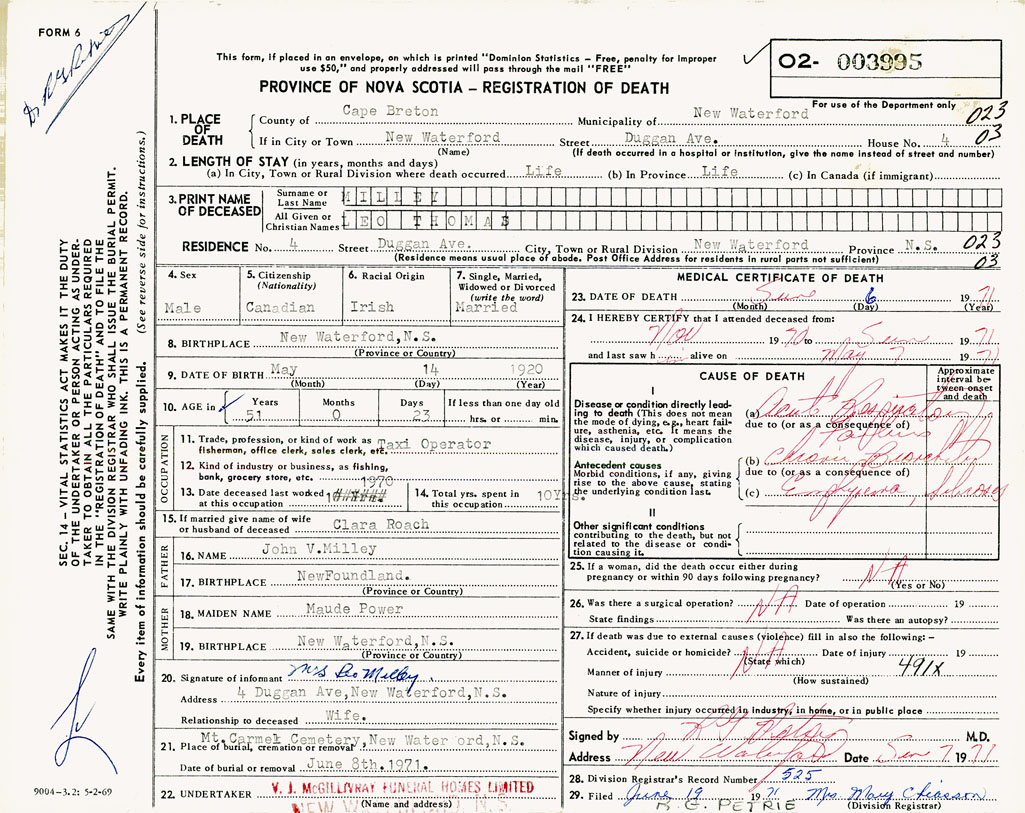 FORM 6
Dr R G Petrie
This form, if placed in an envelope, on which is printed "Dominion Statistics – Free, penalty for improper
use $50," and properly addressed will pass through the mail "FREE"
PROVINCE OF NOVA SCOTIA – REGISTRATION OF DEATH
02- 003995
For use of the Department only
023
03
1. PLACE OF DEATH
County of Cape Breton Municipality of New Waterford
If in City or Town New Waterford Street Duggan Ave. House No. 4
(Name) (If death occurred in a hospital or institution, give the name instead of street and number)
2. LENGTH OF STAY (in years, months and days)
(a) In City, Town or Rural Division where death occurred Life (b) In Province Life (c) In Canada (if immigrant)
3. PRINT NAME OF DECEASED
Surname or Last Name MILLEY
All Given or Christian Names LEO THOMAS
RESIDENCE No. 4 Street Duggan Ave. City, Town or Rural Division New Waterford Province N.S. 023
(Residence means usual place of abode. Post Office Address for residents in rural parts not sufficient) 03
4. Sex
Male
5. Citizenship
(Nationality)
Canadian
6. Racial Origin
Irish
7. Single, Married,
Widowed or Divorced
(write the word)
Married
8. BIRTHPLACE New Waterford,N.S.
(Province or Country)
9. DATE OF BIRTH May 14 1920
(Month) (Day) (Year)
10. AGE in Years Months Days If less than one day old
51 0 23 hrs. or min.
OCCUPATION
11. Trade, profession, or kind of work as
fishermen, office clerk, sales clerk, etc. Taxi Operator
12. Kind of industry or business, as fishing,
bank, grocery store, etc.
13. Date deceased last worked
at this occupation 1970
14. Total yrs. spent in
this occupation 10Yrs.
15. If married give name of wife
or husband of deceased Clara Roach
FATHER
16. NAME John V.Milley
17. BIRTHPLACE NewFoundland.
(Province or Country)
MOTHER
18. MAIDEN NAME Maude Power
19. BIRTHPLACE New Waterford,N.S.
(Province or Country)
20. Signature of informant Mrs Leo Milley
Address 4 Duggan Ave,New Waterford,N.S.
Relationship to deceased Wife.
21. Place of burial, cremation or removal Mt.Carmel Cemetery,New Water ord,N.S.
Date of burial or removal June 8th.1971.
22. UNDERTAKER V. J. McGILLIVRAY FUNERAL HOMES LIMITED
(Name and address)
NEW WATERFORD, N.S.
MEDICAL CERTIFICATE OF DEATH
23. DATE OF DEATH June 6 1971
(Month) (Day) (Year)
24. I HEREBY CERTIFY that I attended deceased from:
Nov 1970 to June 1971
and last saw h im alive on May 7 1971
CAUSE OF DEATH
Approximate
interval be-
tween onset
and death
I
Disease or condition directly lead-
ing to death (This does not mean
the mode of dying, e.g., heart fail-
ure, asthenia, etc. It means the
disease, injury, or complication
which caused death.)
(a) Acute Respiratory
due to (or as a consequence of)
Failure
Antecedent causes
Morbid conditions, if any, giving
rise to the above cause, stating
the underlying condition last.
(b) Chronic Bronchitis
due to (or as a consequence of)
(c) Emphysema
II
Other significant conditions
contributing to the death, but not
related to the disease or condi-
tion causing it.
25. If a woman, did the death occur either during
pregnancy or within 90 days following pregnancy? NA
(Yes or No)
26. Was there a surgical operation? NA Date of operation 19
State findings Was there an autopsy?
27. If death was due to external causes (violence) fill in also the following:–
Accident, suicide or homicide? NA Date of injury 19
(State which)
Manner of injury 491X
(How sustained)
Nature of injury
Specify whether injury occurred in industry, in home, or in public place
Signed by R G Petrie M.D.
Address New Waterford Date June 7 1971
28. Division Registrar's Record Number 525
29. Filed June 19 1971 Mrs. Mary Chiasson
R. G. PETRIE (Division Registrar)
SEC. 14 – VITAL STATISTICS ACT MAKES IT THE DUTY
OF THE UNDERTAKER OR PERSON ACTING AS UNDER-
TAKER TO OBTAIN ALL THE PARTICULARS REQUIRED
IN THE "REGISTRATION OF DEATH" AND TO FILE THE
SAME WITH THE DIVISION REGISTRAR WHO SHALL ISSUE THE BURIAL PERMIT.
WRITE PLAINLY WITH UNFADING INK. THIS IS A PERMANENT RECORD.
Every item of information should be carefully supplied. (See reverse side for instructions.)
9004-3.2: 5-2-69